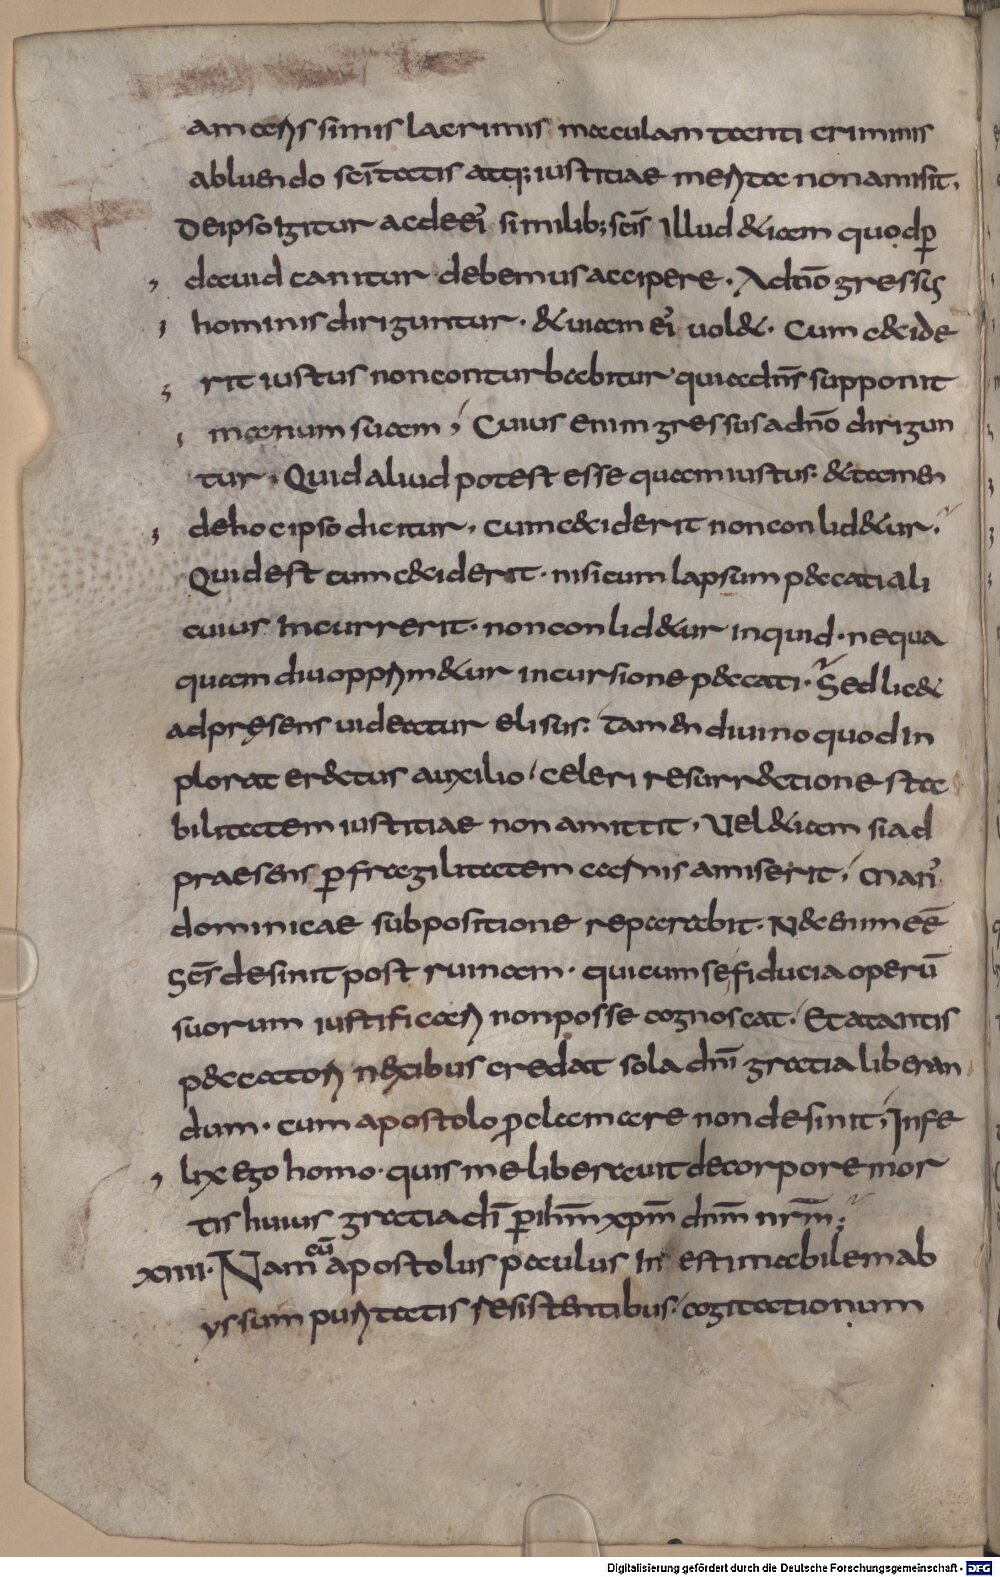 amarissimis lacrimis maculam tanti criminis
abluendo sc̄itatis atq; iustitiae merita non amisit.
De ipso igitur ac de ei' similib; sc̄is illud &iam quod p̄
dauid canitur debemus accipere. A dn̄o gressus
hominis diriguntur. & uiam ei' uol&. Cum c&cide
rit iustus non conturbabitur quia dn̄s supponit
manum suam, Cuius enim gressus a dn̄o dirigun
tur, Quid aliud potest esse quam iustus. & tamen
de hoc ipso dicitur, cum c&ciderit non conlid&ur.
Quid est cum c&ciderit. nisi cum lapsum p&ccati ali
cuius incurrerit. non conlid&ur inquid. nequa
quam diu opprim&ur incursione p&ccati. Sed lic&
ad pręsens uideatur elisus. tamen diuino quod in
plorat er&ctus auxilio celeri resurr&ctione sta
bilitatem iustitiae non amittit, Uel &iam si ad
praesens p̄ fragilitatem carnis amiserit, man'
dominicae subpositione reparabit. N&c enim eē
sc̄s desinit post ruinam. qui cum se fiducia operū
suorum iustificari non posse cognoscat. Et a tantis
p&ccatorum nexibus credat sola dn̄i gratia liberan
dum. cum apostolo p̄clamare non desinit, Infe
lix ego homo. quis me liberauit de corpore mor
tis huius gratia dī p̄ ihm̄ xpm̄ dnm̄ nrm̄;
XIIII. Nam cū apostolus paulus in estimabilem ab
yssum puritatis resistentibus cogitationum
Digitalisierung gefördert durch die Deutsche Forschungsgemeinschaft - DFG